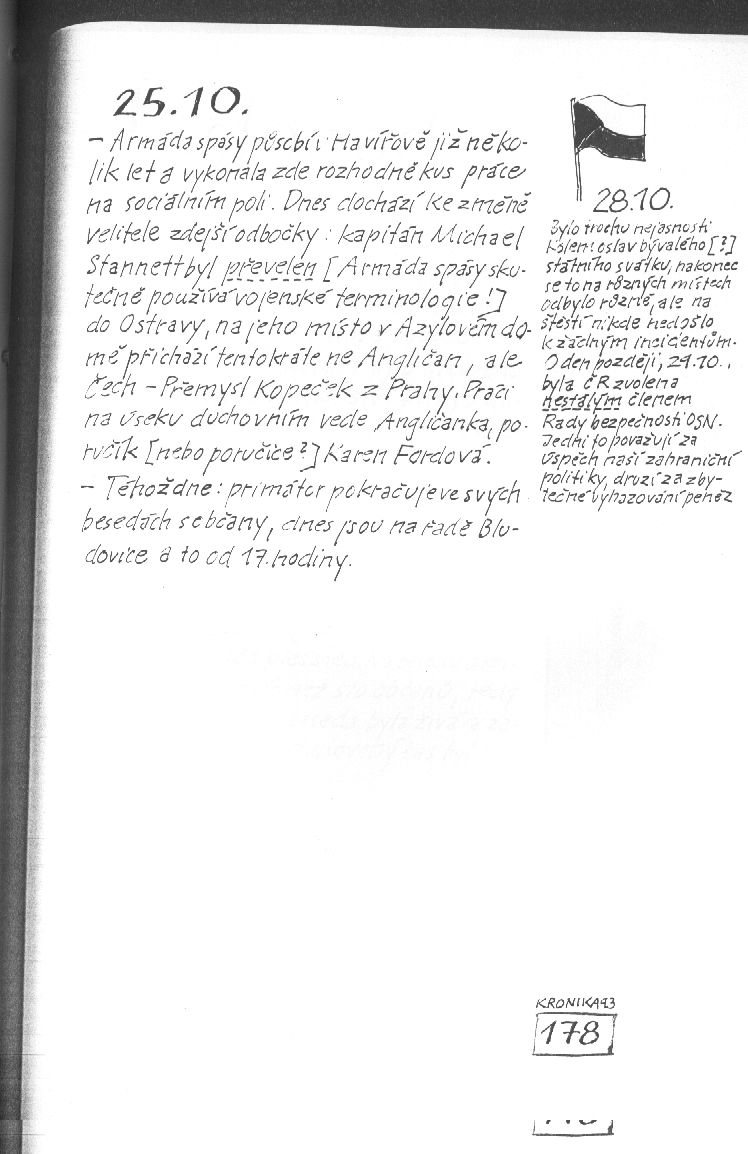 25.10.
- Armáda spásy působí v Havířově již něko-
lik let a vykonala zde rozhodně kus práce
na sociálním poli. Dnes dochází ke změně
velitele zdejší odbočky: kapitán Michael
Stannett byl převelen [Armáda spásy sku-
tečně používá vojenské terminologie!]
do Ostravy, na jeho místo v Azylovém do-
mě přichází tentokráte ne Angličan, ale
Čech - Přemysl Kopeček z Prahy. Práci
na úseku duchovním vede Angličanka, po-
ručík [nebo poručice?] Karen Fordová.
- Téhož dne: primátor pokračuje ve svých
besedách s občany, dnes jsou na řadě Blu-
dovice a to od 17. hodiny.
28.10.
Bylo trochu nejasností
kolem oslav bývalého [?]
státního svátku, nakonec
se to na různých místech
odbylo různě, ale na
štěstí nikde nedošlo
k žádným incidentům.
O den později, 29.10.,
byla ČR zvolena
nestálým členem
Rady bezpečnosti OSN.
Jedni to považují za
úspěch naší zahraniční
politiky, druzí za zby-
tečné vyhazování peněz
KRONIKA 93
178